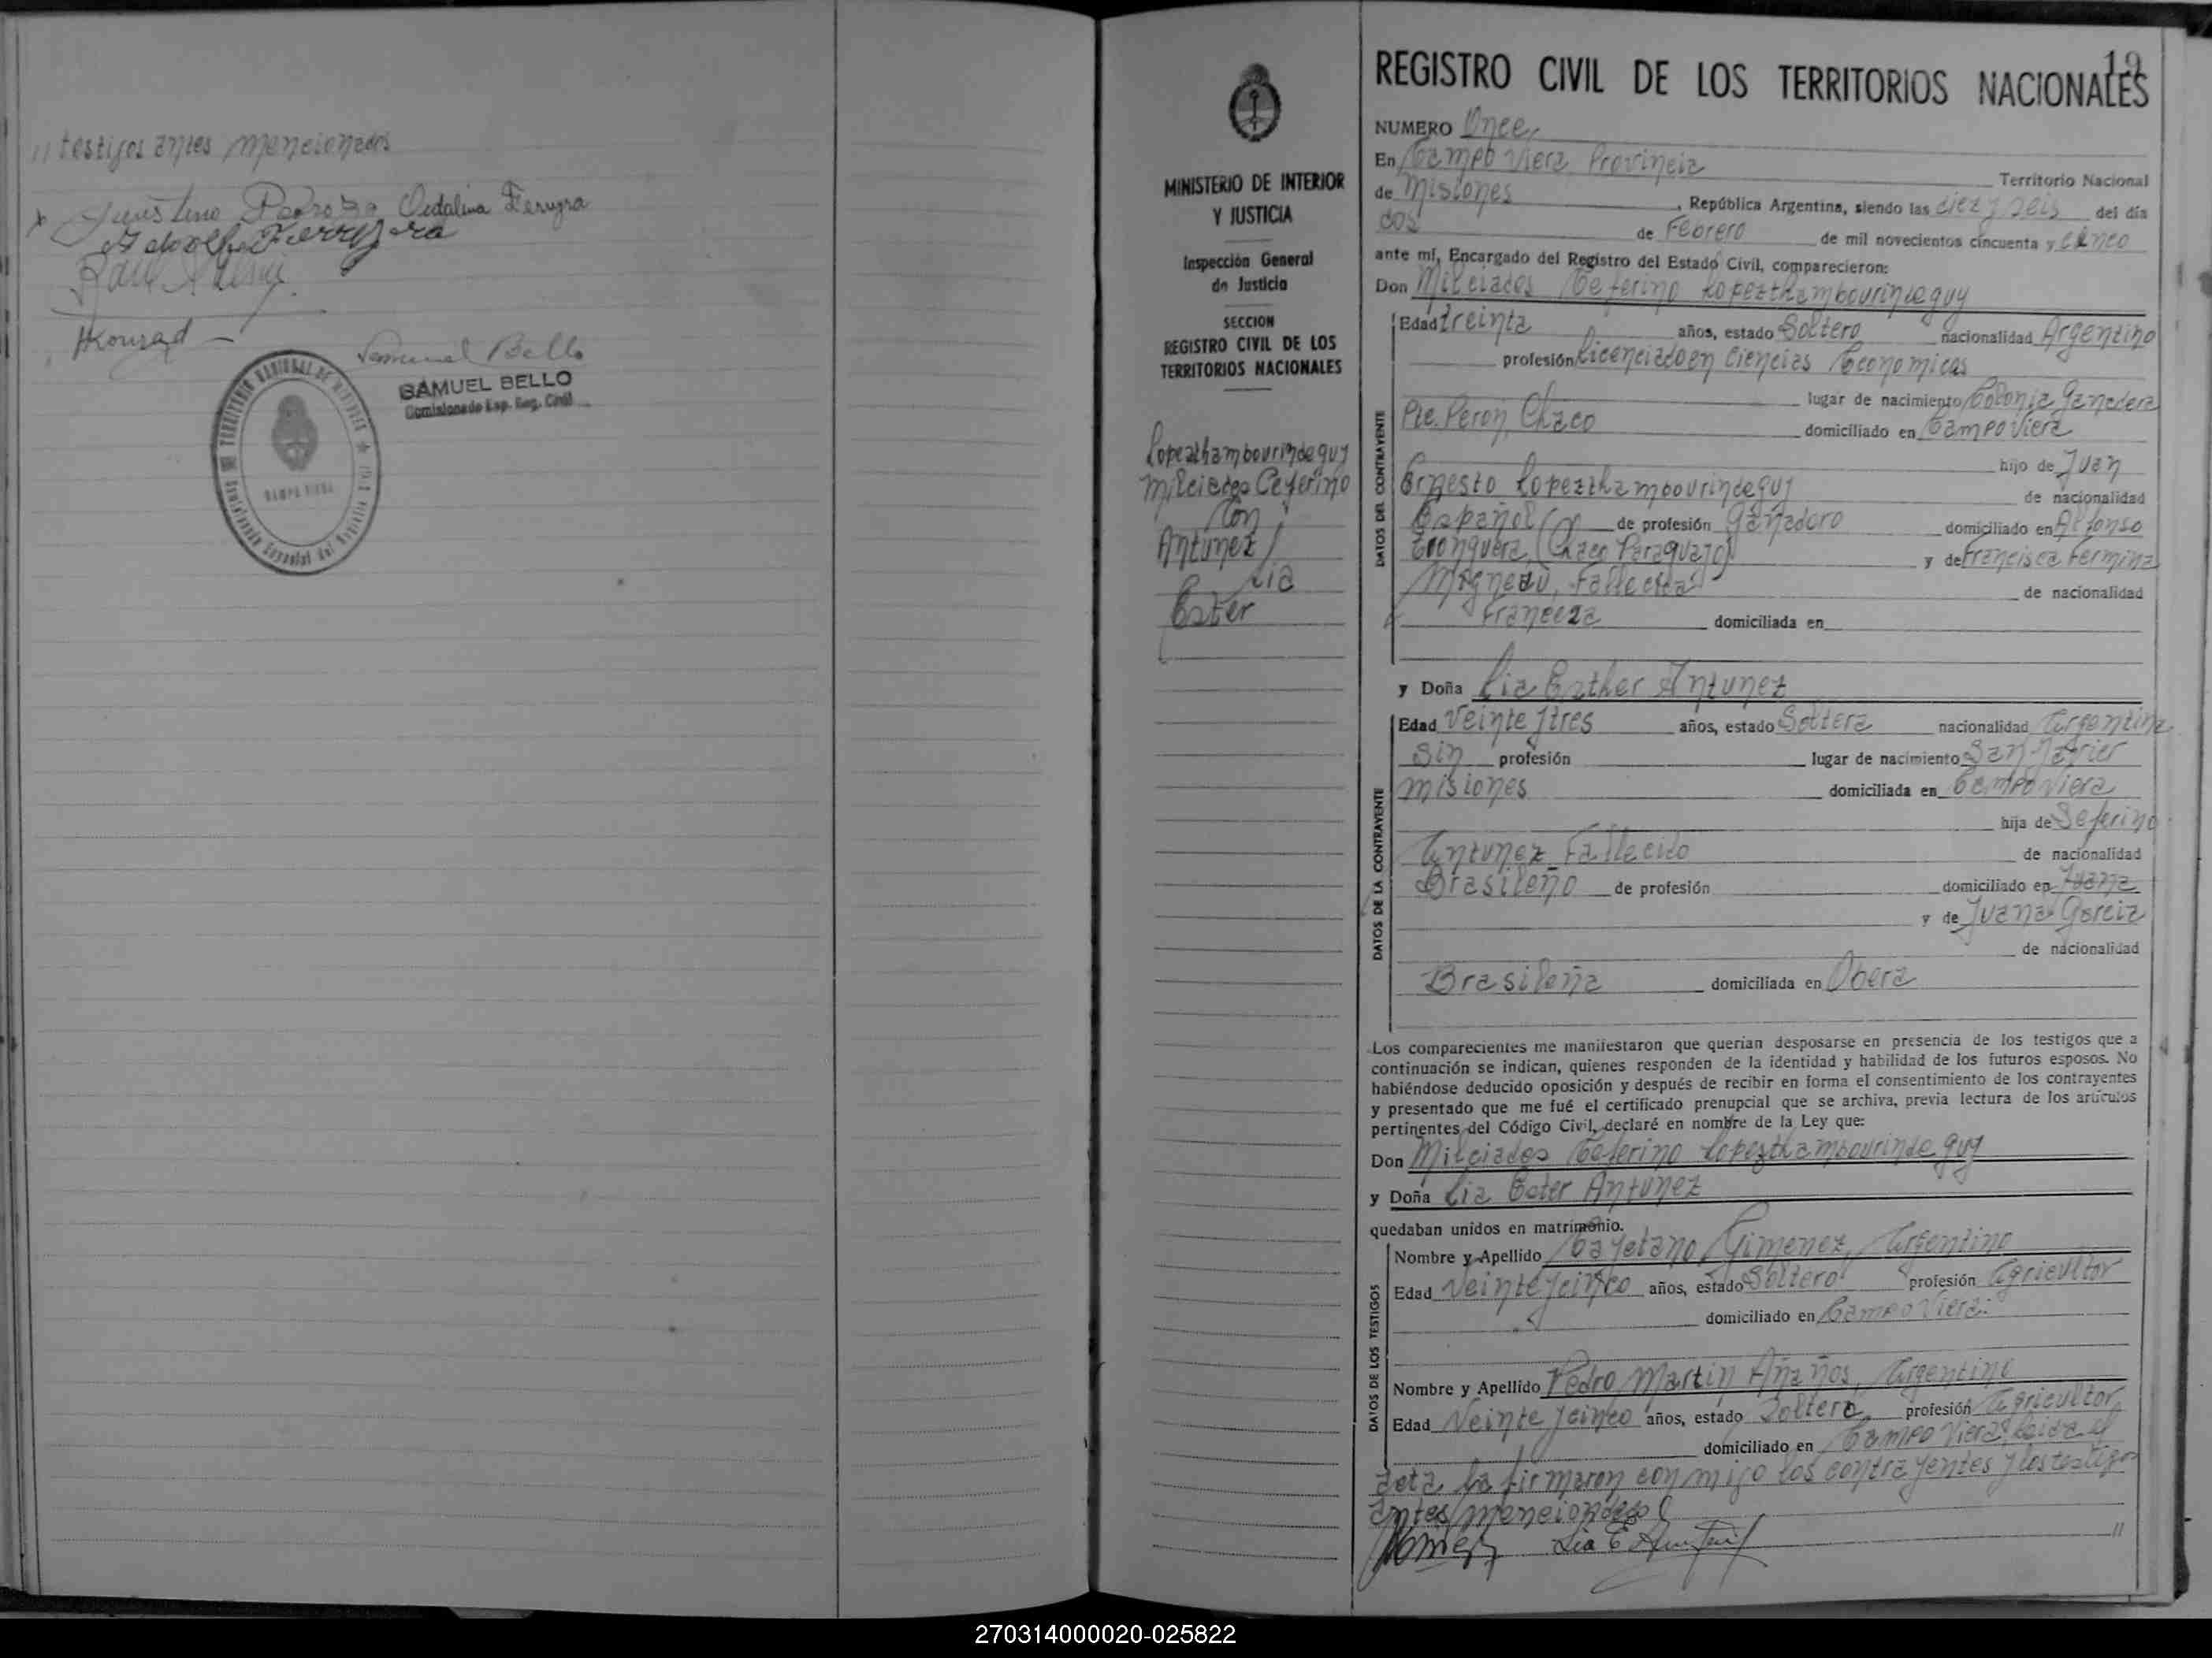 // testigos antes mencionados
Justino Pedrozo Ordalina Ferreyra
Adolfo Ferreyra
Raul
HKonrad
Samuel Bello
SAMUEL BELLO
Comisionado Esp. Reg. Civil
CAMPO VIERA
19
MINISTERIO DE INTERIOR
Y JUSTICIA
Inspección General
de Justicia
SECCION
REGISTRO CIVIL DE LOS
TERRITORIOS NACIONALES
Lopezthambourindeguy
Milciades Ceferino
Con
Antunez
Lia
Ester
REGISTRO CIVIL DE LOS TERRITORIOS NACIONALES
NUMERO Once
En Campo Viera Provincia
Territorio Nacional
de Misiones, República Argentina, siendo las diez y seis del día
dos de Febrero de mil novecientos cincuenta y cinco
ante mí, Encargado del Registro del Estado Civil, comparecieron:
Don Milciades Ceferino Lopezthambourindeguy
DATOS DEL CONTRAYENTE
Edad treinta años, estado Soltero nacionalidad Argentino
profesión Licenciado en Ciencias Economicas
lugar de nacimiento Colonia Ganadera
Pte. Peron, Chaco domiciliado en Campo Viera
hijo de Juan
Ernesto Lopezthambourindeguy de nacionalidad
Español de profesión Ganadero domiciliado en Alfonso
Tronquera, (Chaco Paraguayo) y de Francisca Fermina
Mogneau, Fallecida de nacionalidad
Franceza domiciliada en
y Doña Lia Esther Antunez
DATOS DE LA CONTRAYENTE
Edad Veinte y tres años, estado Soltera nacionalidad Argentina
Sin profesión lugar de nacimiento San Javier
Misiones domiciliada en Campo Viera
hija de Seferino
Antunez Fallecido de nacionalidad
Brasileño de profesión domiciliado en Juana
y de Juana Garcia
de nacionalidad
Brasileña domiciliada en Obera
Los comparecientes me manifestaron que querían desposarse en presencia de los testigos que a
continuación se indican, quienes responden de la identidad y habilidad de los futuros esposos. No
habiéndose deducido oposición y después de recibir en forma el consentimiento de los contrayentes
y presentado que me fué el certificado prenupcial que se archiva, previa lectura de los artículos
pertinentes del Código Civil, declaré en nombre de la Ley que:
Don Milciades Ceferino Lopezthambourindeguy
y Doña Lia Ester Antunez
quedaban unidos en matrimonio.
DATOS DE LOS TESTIGOS
Nombre y Apellido Cayetano Gimenez, Argentino
Edad Veinte y cinco años, estado Soltero profesión Agricultor
domiciliado en Campo Viera
Nombre y Apellido Pedro Martin Añaños, Argentino
Edad Veinte y cinco años, estado Soltero, profesión Agricultor
domiciliado en Campo Viera Leida el
acta la firmaron conmigo los contrayentes y los testigos
antes mencionados //
Lia E Antunez
270314000020-025822